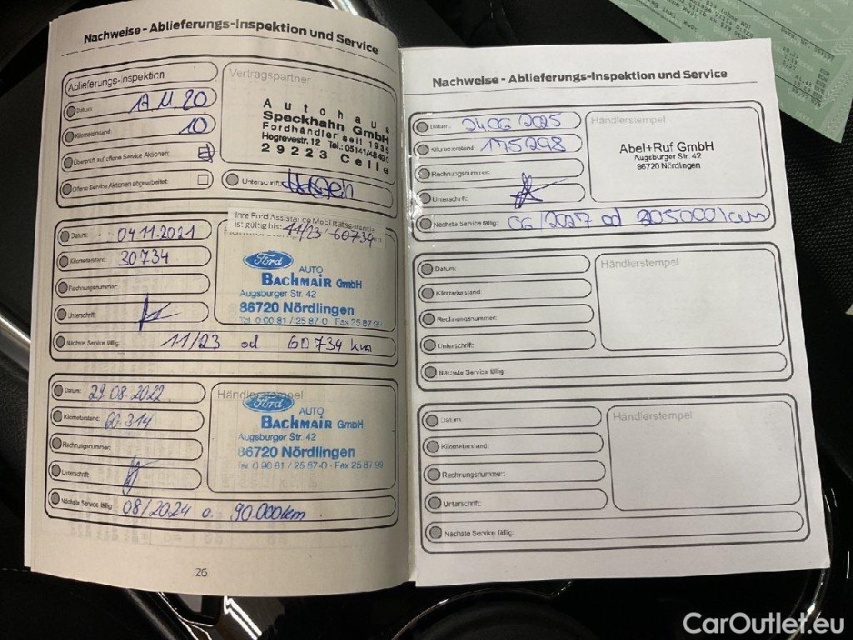 Nachweise - Ablieferungs-Inspektion und Service
Ablieferungs-Inspektion
Datum: 17 11 20
Kilometerstand: 10
Überprüft auf offene Service Aktionen:
Offene Service Aktionen abgearbeitet:
Vertragspartner
Autohaus
Speckhahn GmbH
Fordhändler seit 193
Hogrevestr. 12 Tel.: 05141/48400
29223 Celle
Unterschrift:
Datum: 04.11.2021
Kilometerstand: 30734
Rechnungsnummer:
Unterschrift:
Nächste Service fällig: 11/23 od 60734 km
Ihre Ford Assistance Mobilitätsgarantie
ist gültig bis: 11/23 - 60734
Ford
AUTO
BACHMAIR GmbH
Augsburger Str. 42
86720 Nördlingen
Tel. 0 90 81 / 25 87-0 · Fax 25 87 90
Datum: 29.08.2022
Kilometerstand: 60.314
Rechnungsnummer:
Unterschrift:
Nächste Service fällig: 08/2024 o. 90.000km
Händlerstempel
Ford
AUTO
BACHMAIR GmbH
Augsburger Str. 42
86720 Nördlingen
Tel. 0 90 81 / 25 87-0 · Fax 25 87 90
26
Nachweise - Ablieferungs-Inspektion und Service
Datum: 24.06/2025
Kilometerstand: 175298
Rechnungsnummer:
Unterschrift:
Nächste Service fällig: 06/2027 od 205000 km
Händlerstempel
Abel+Ruf GmbH
Augsburger Str. 42
86720 Nördlingen
Datum:
Kilometerstand:
Rechnungsnummer:
Unterschrift:
Nächste Service fällig:
Händlerstempel
Datum:
Kilometerstand:
Rechnungsnummer:
Unterschrift:
Nächste Service fällig:
Händlerstempel
CarOutlet.eu